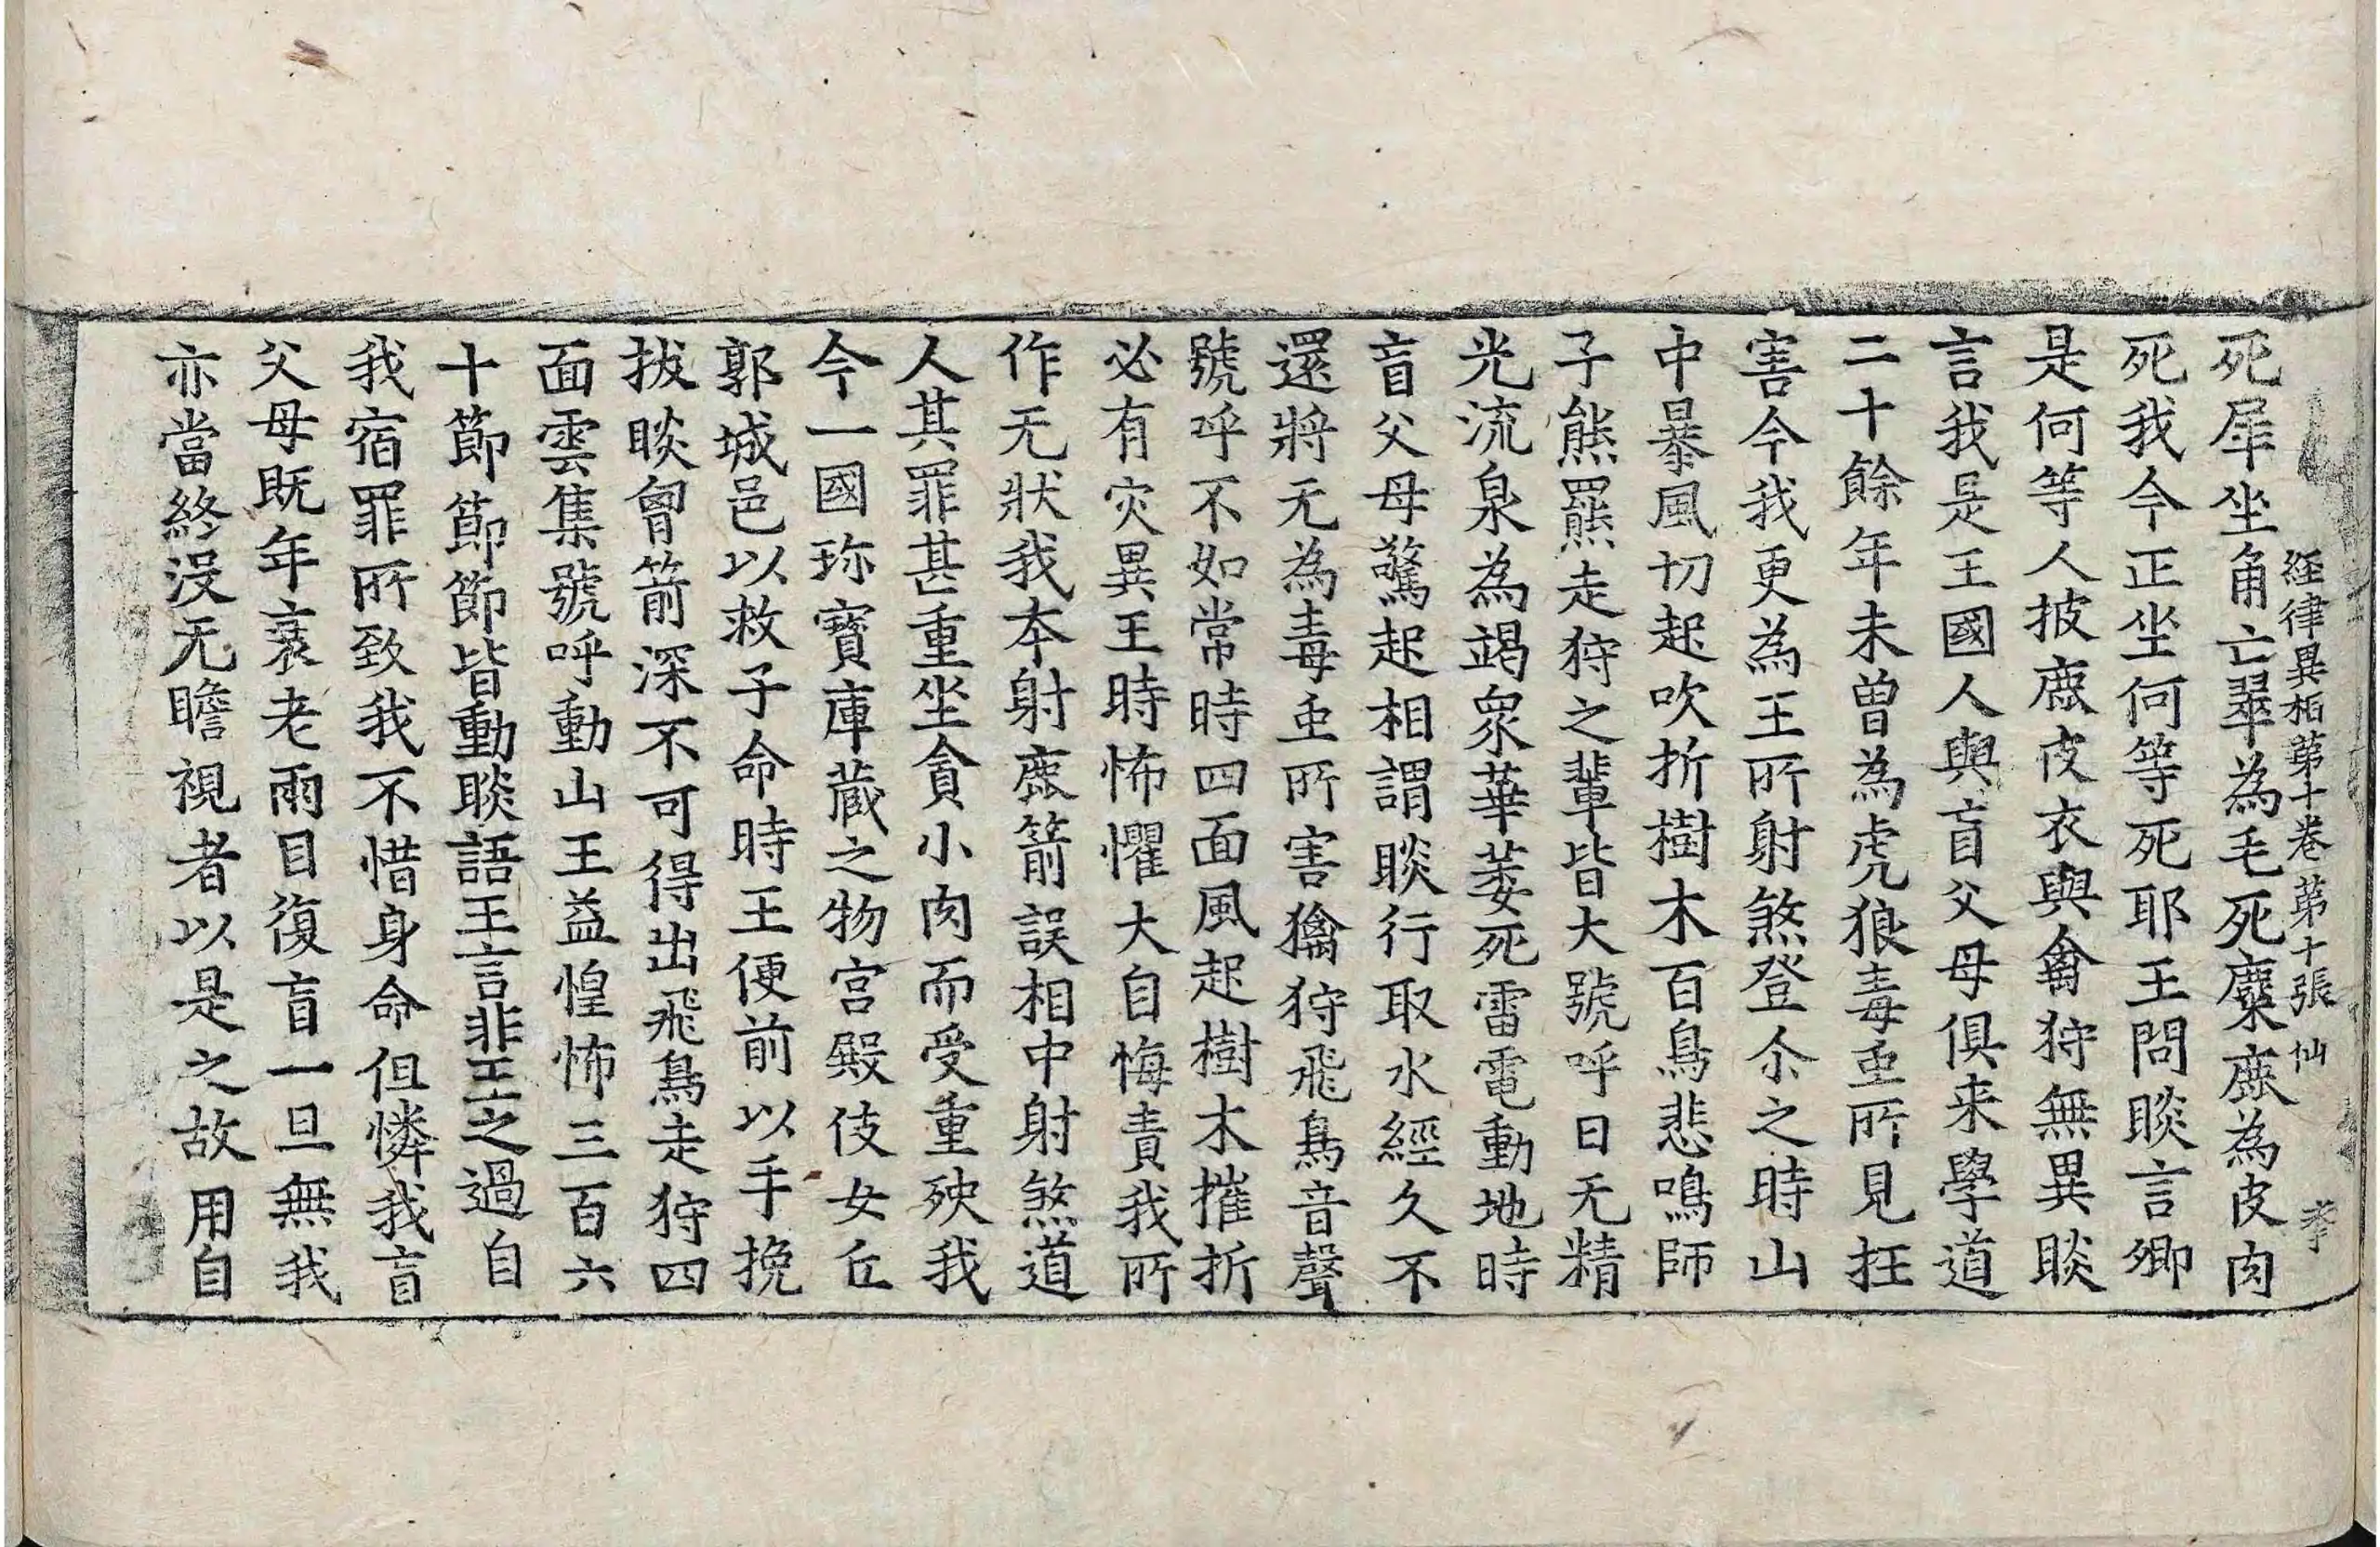 經律異相苐十卷 苐十張 仙
死犀坐角亡翠為毛死麋鹿為皮肉
死我今正坐何等死耶王問睒言卿
是何等人披鹿皮衣與禽狩無異睒
言我是王國人與盲父母俱来學道
二十餘年未曽為虎狼毒䖝所見抂
害今我更為王所射煞登尒之時山
中暴風切起吹折樹木百鳥悲鳴師
子熊羆走狩之輩皆大號呼日无精
光流泉為竭衆華萎死雷電動地時
盲父母驚起相謂睒行取水經久不
還將无為毒䖝所害獦狩飛鳥音聲
號呼不如常時四面風起樹木摧折
必有灾異王時怖懼大自悔責我所
作无狀我夲射鹿箭誤相中射煞道
人其罪甚重坐貪小肉而受重殃我
今一國珎寶庫蔵之物宫殿伎女丘
郭城邑以救子命時王便前以手挽
拔睒曾箭深不可得出飛鳥走狩四
面雲集號呼動山王益惶怖三百六
十節節節皆動睒語王言非王之過自
我宿罪所致我不惜身命但憐我盲
父母既年衰老兩目復盲一旦無我
亦當終没无瞻視者以是之故用自